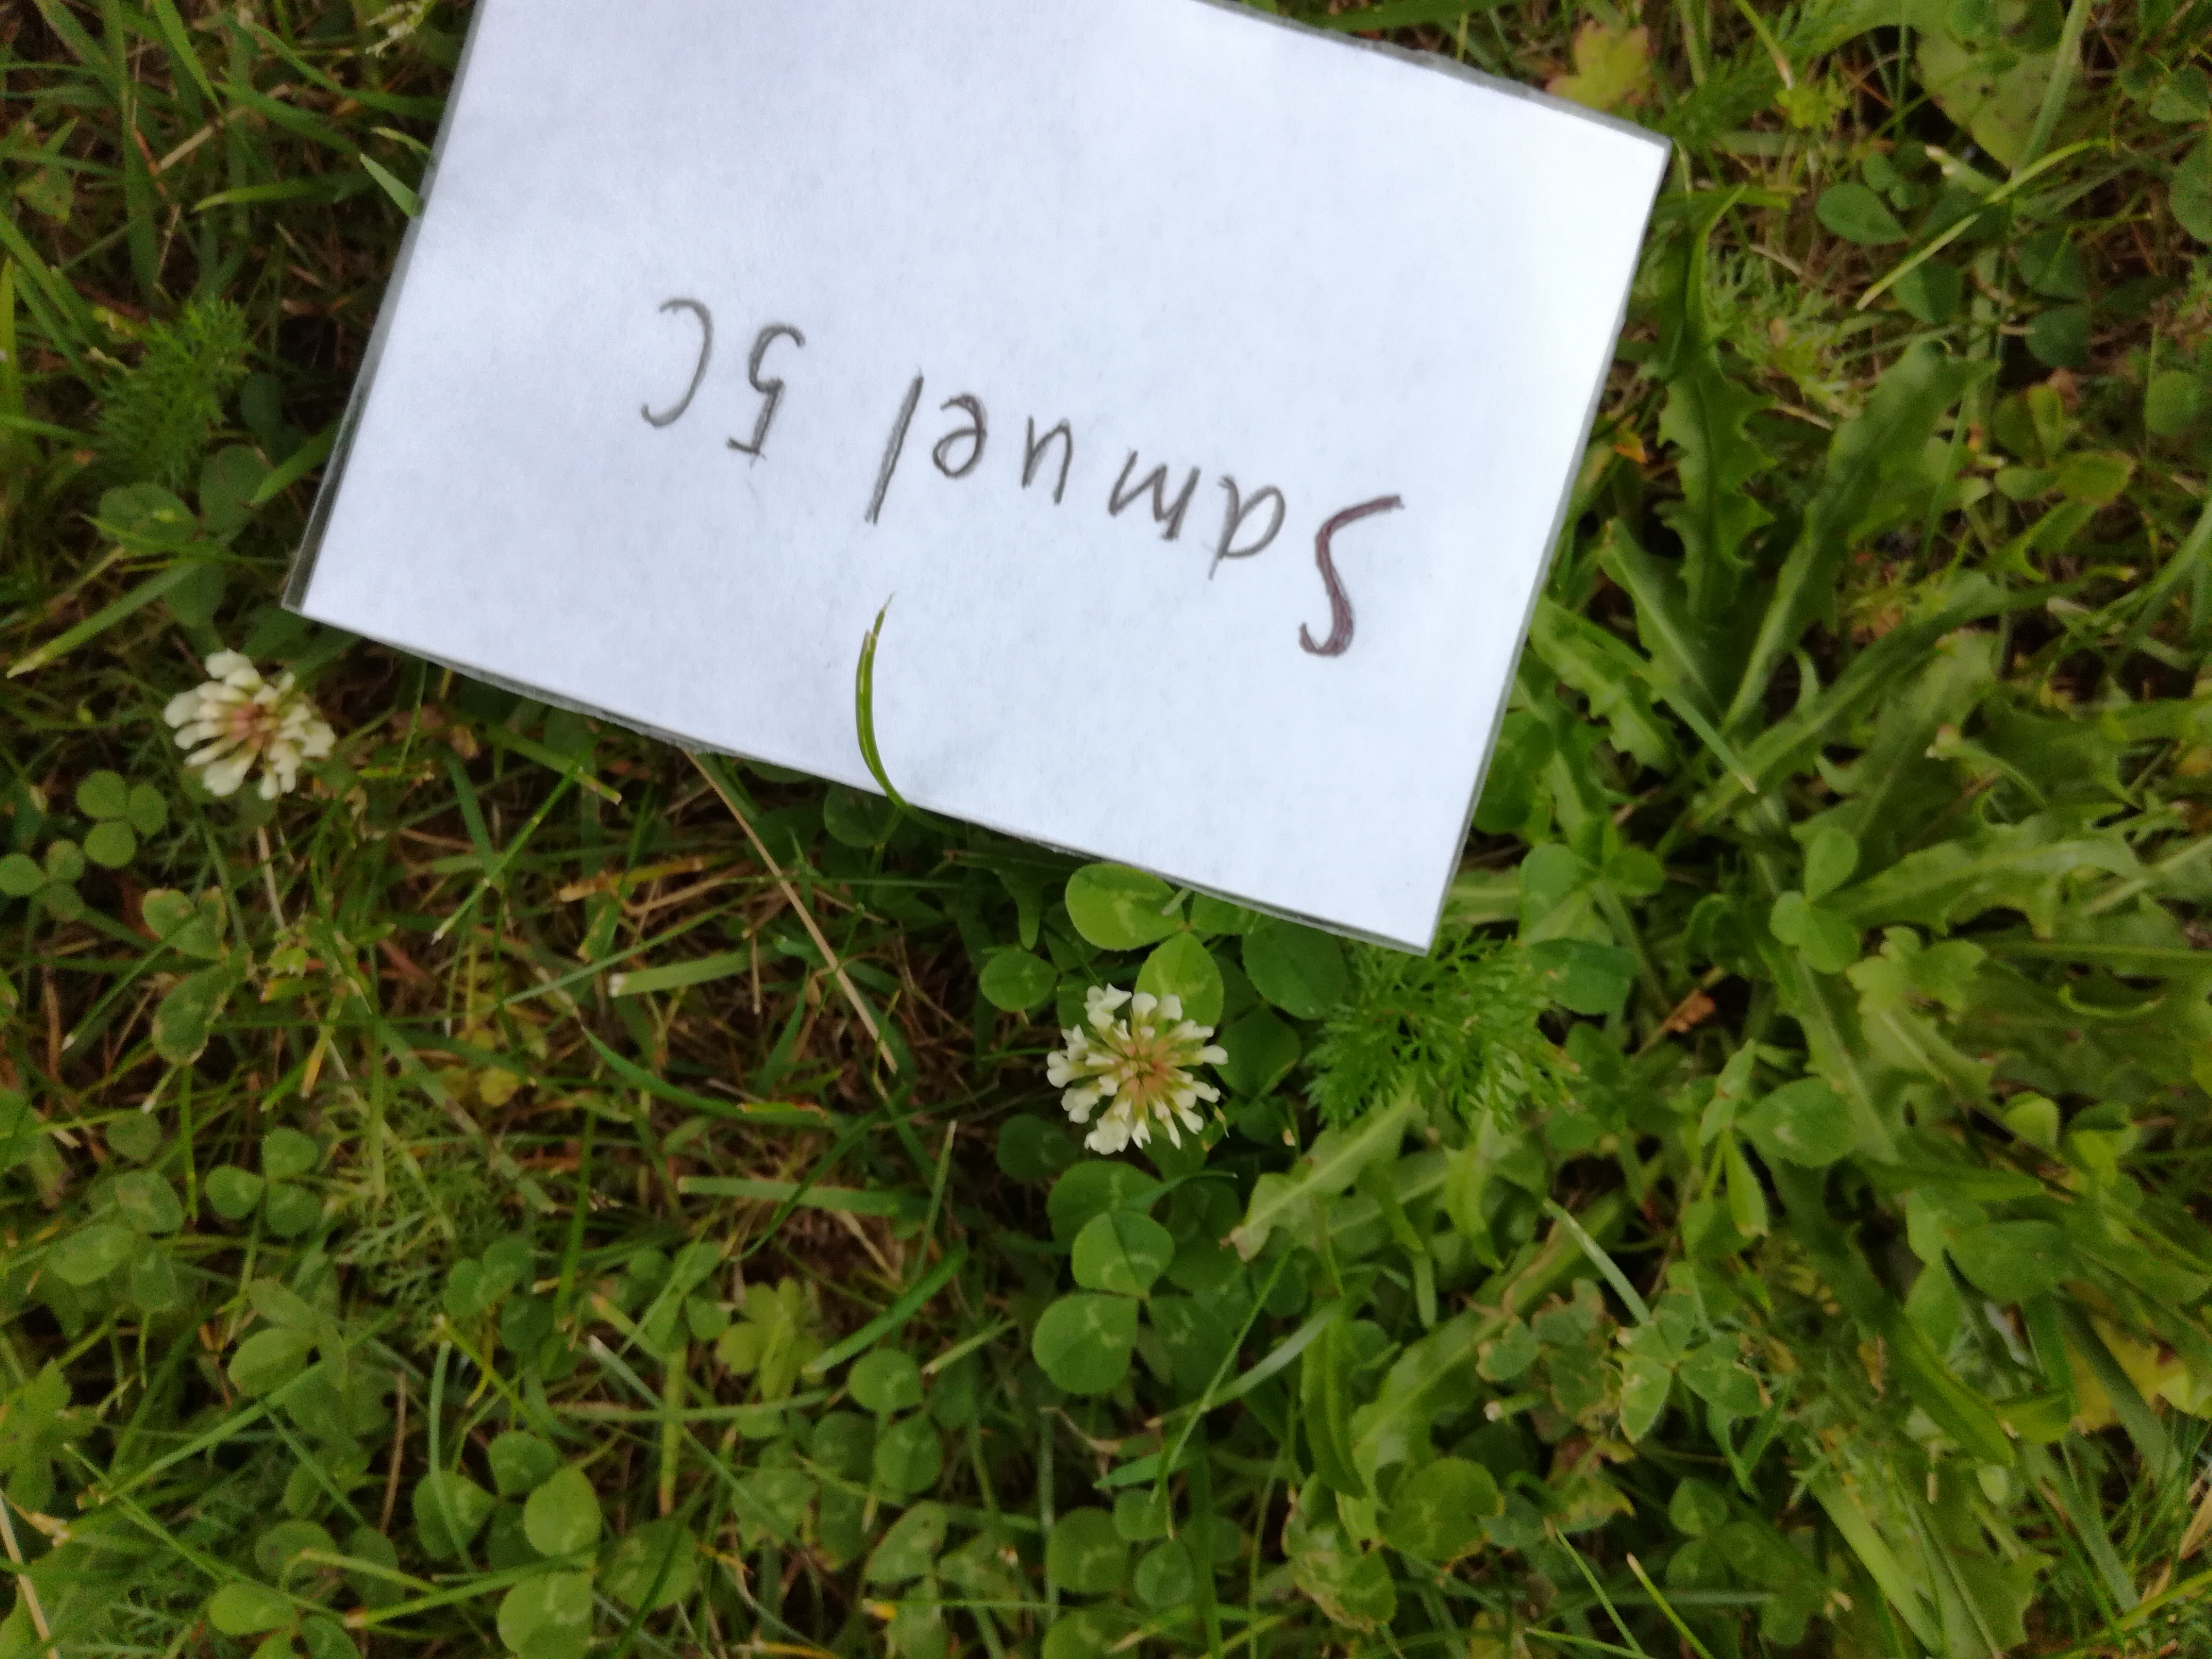 Samuel 5C